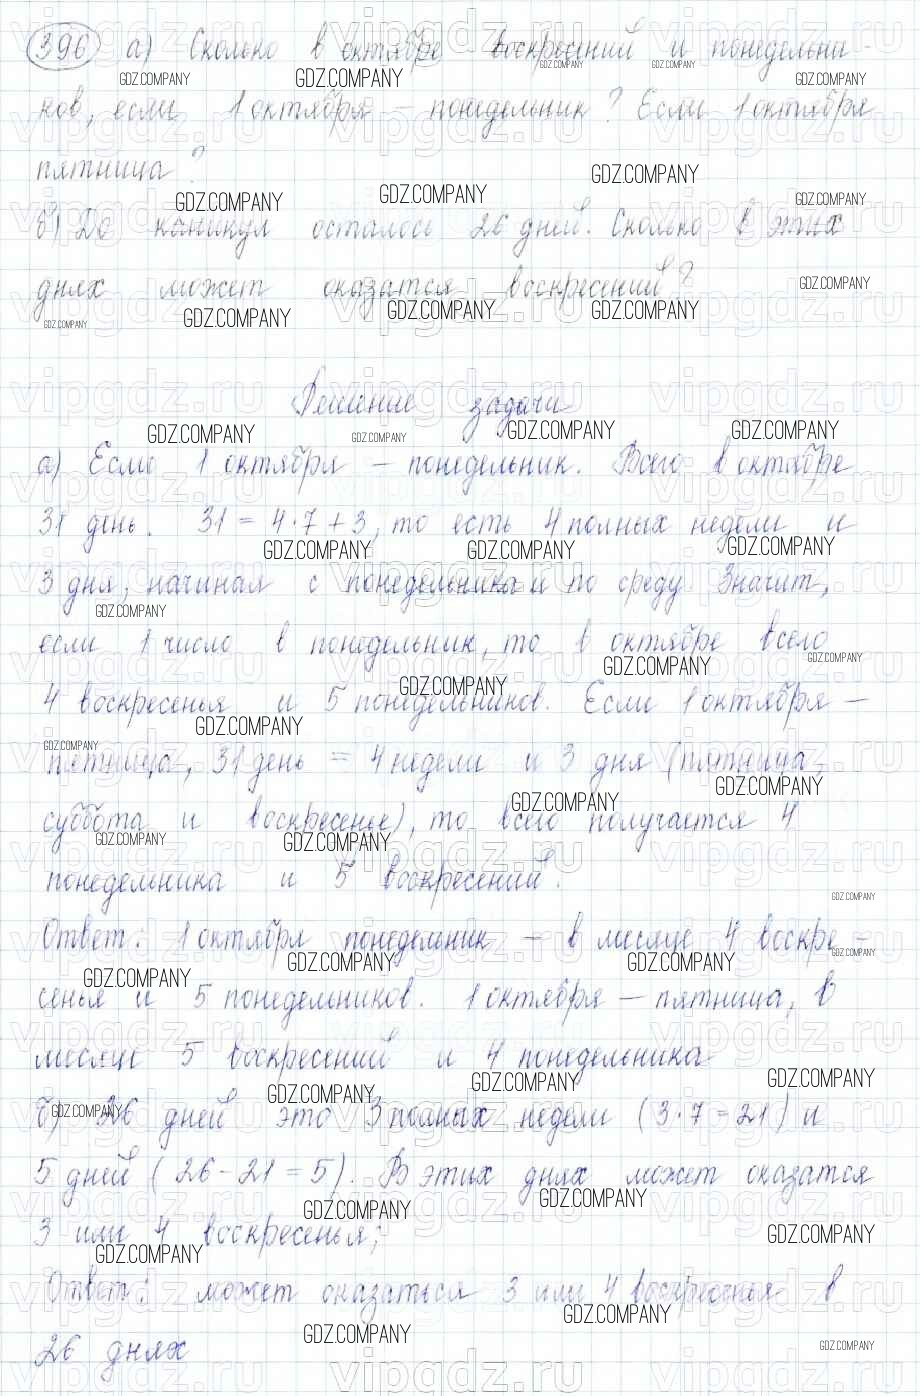 396 а) Сколько в октябре воскресений и понедельни-
ков, если 1 октября – понедельник? Если 1 октября
пятница?
б) До каникул осталось 26 дней. Сколько в этих
днях может оказатся воскресений?
Решение задачи
а) Если 1 октября – понедельник. Всего в октябре
31 день. 31 = 4·7+3, то есть 4 полных недели и
3 дня, начиная с понедельника и по среду Значит,
если 1 число в понедельник, то в октябре всего
4 воскресенья и 5 понедельников. Если 1 октября –
пятница, 31 день = 4 недели и 3 дня (пятница,
суббота и воскресенье), то всего получается 4
понедельника и 5 воскресений.
Ответ: 1 октября понедельник – в месяце 4 воскре-
сенья и 5 понедельников. 1 октября – пятница, в
месяце 5 воскресений и 4 понедельника
б) 26 дней это 3 полных недели (3·7=21) и
5 дней (26-21=5). В этих днях может оказатся
3 или 4 воскресенья;
Ответ: может оказаться 3 или 4 воскресенья в
26 днях